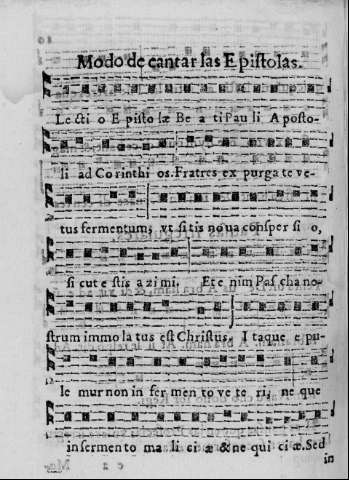 Modo de cantar las Epistolas.
Lecti o E pisto læ Be a ti Pau li A posto-
li ad Corinthi os. Fratres ex purga te ve-
tus fermentum, vt sitis noua consper si o,
si cut e stis a zi mi. Et e nim Pas cha no-
strum immo la tus est Christus. I taque e pu-
le mur non in fer men to ve te ri, ne que
in fermento ma li ci æ & ne qui ci æ. Sed
in